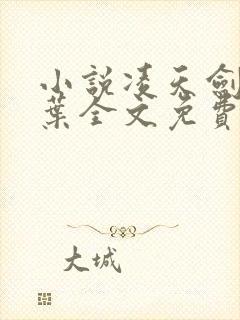 小說凌天劍
葉全文免費
大城